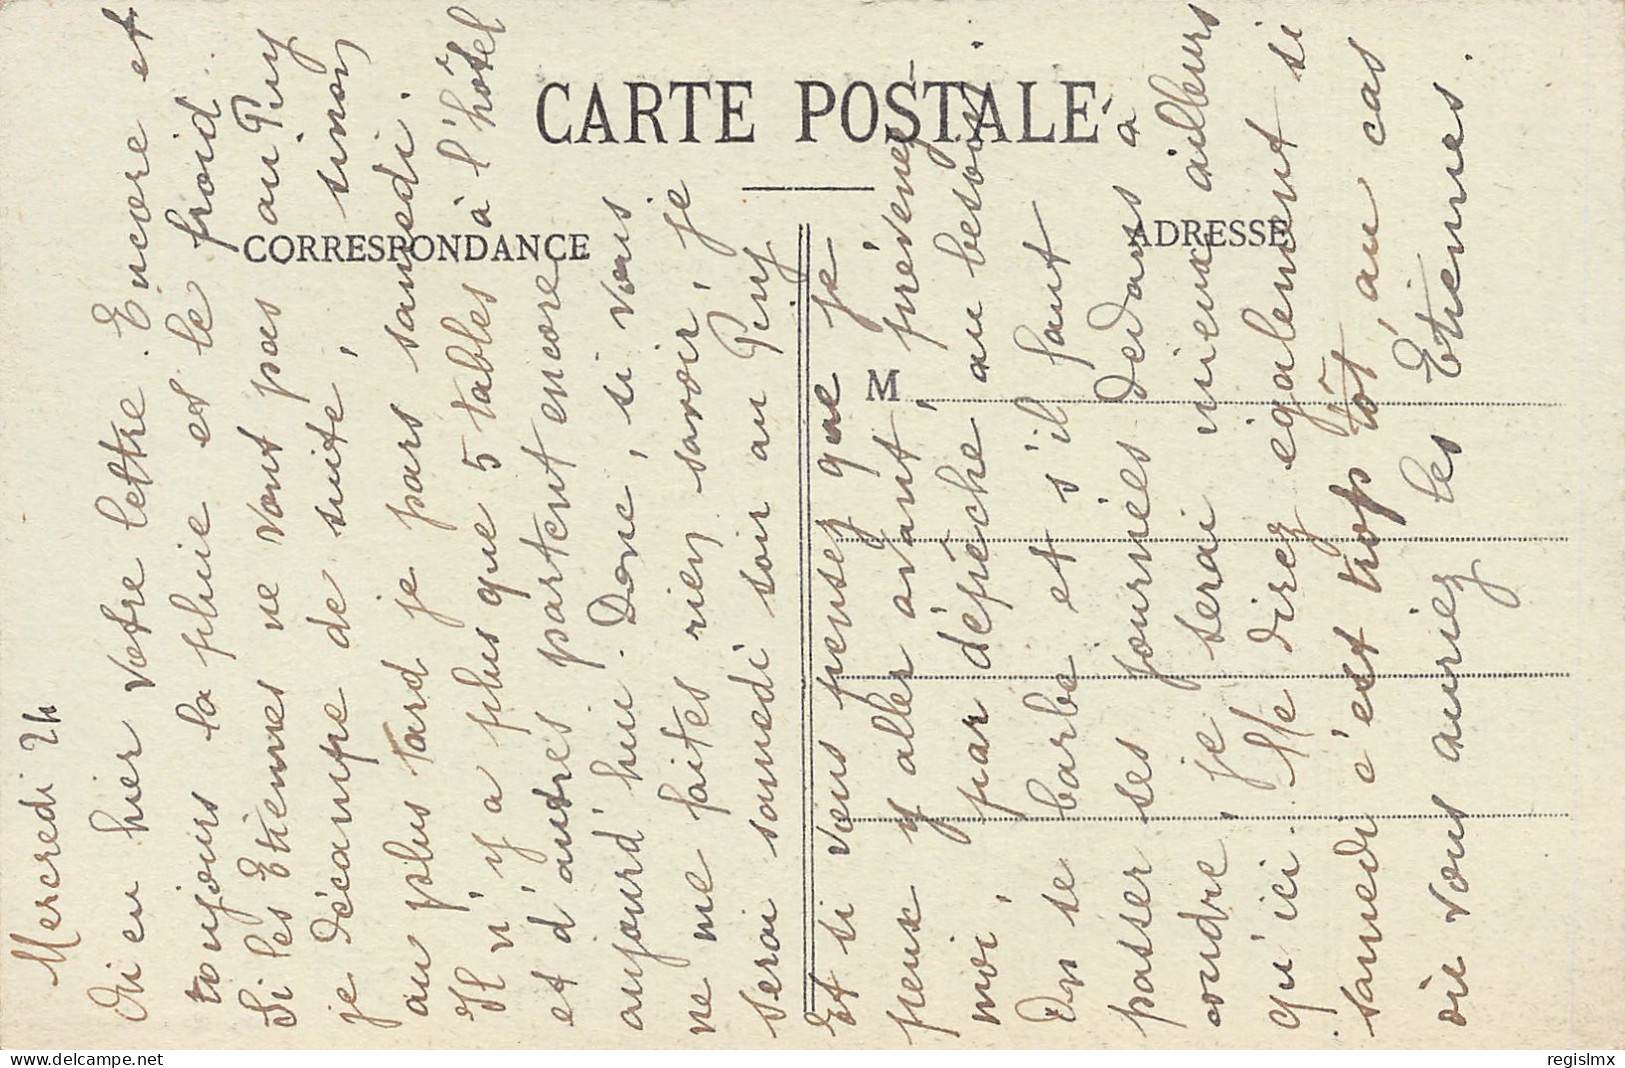 CARTE POSTALE
CORRESPONDANCE
ADRESSE
M
Mercredi 24
en hier votre lettre. Encore et
toujours la pluie et le froid.
Si les Etiennes ne vont pas au Puy
je décampe de suite, sinon
au plus tard je pars samedi.
Il n'y a plus que 5 tables à l'hôtel
et d'autres partent encore
aujourd'hui. Donc, si vous
ne me faites rien savoir, je
serai samedi soir au Puy
Et si vous pensez que je
peux y aller avant, prévenez
moi, par dépêche au besoin.
On se barbe et s'il faut
passer ses journées dedans à
coudre, je serai mieux ailleurs
qu'ici. Me direz également si
samedi c'est trop tôt, au cas
où vous auriez les Etiennes.
regislmx